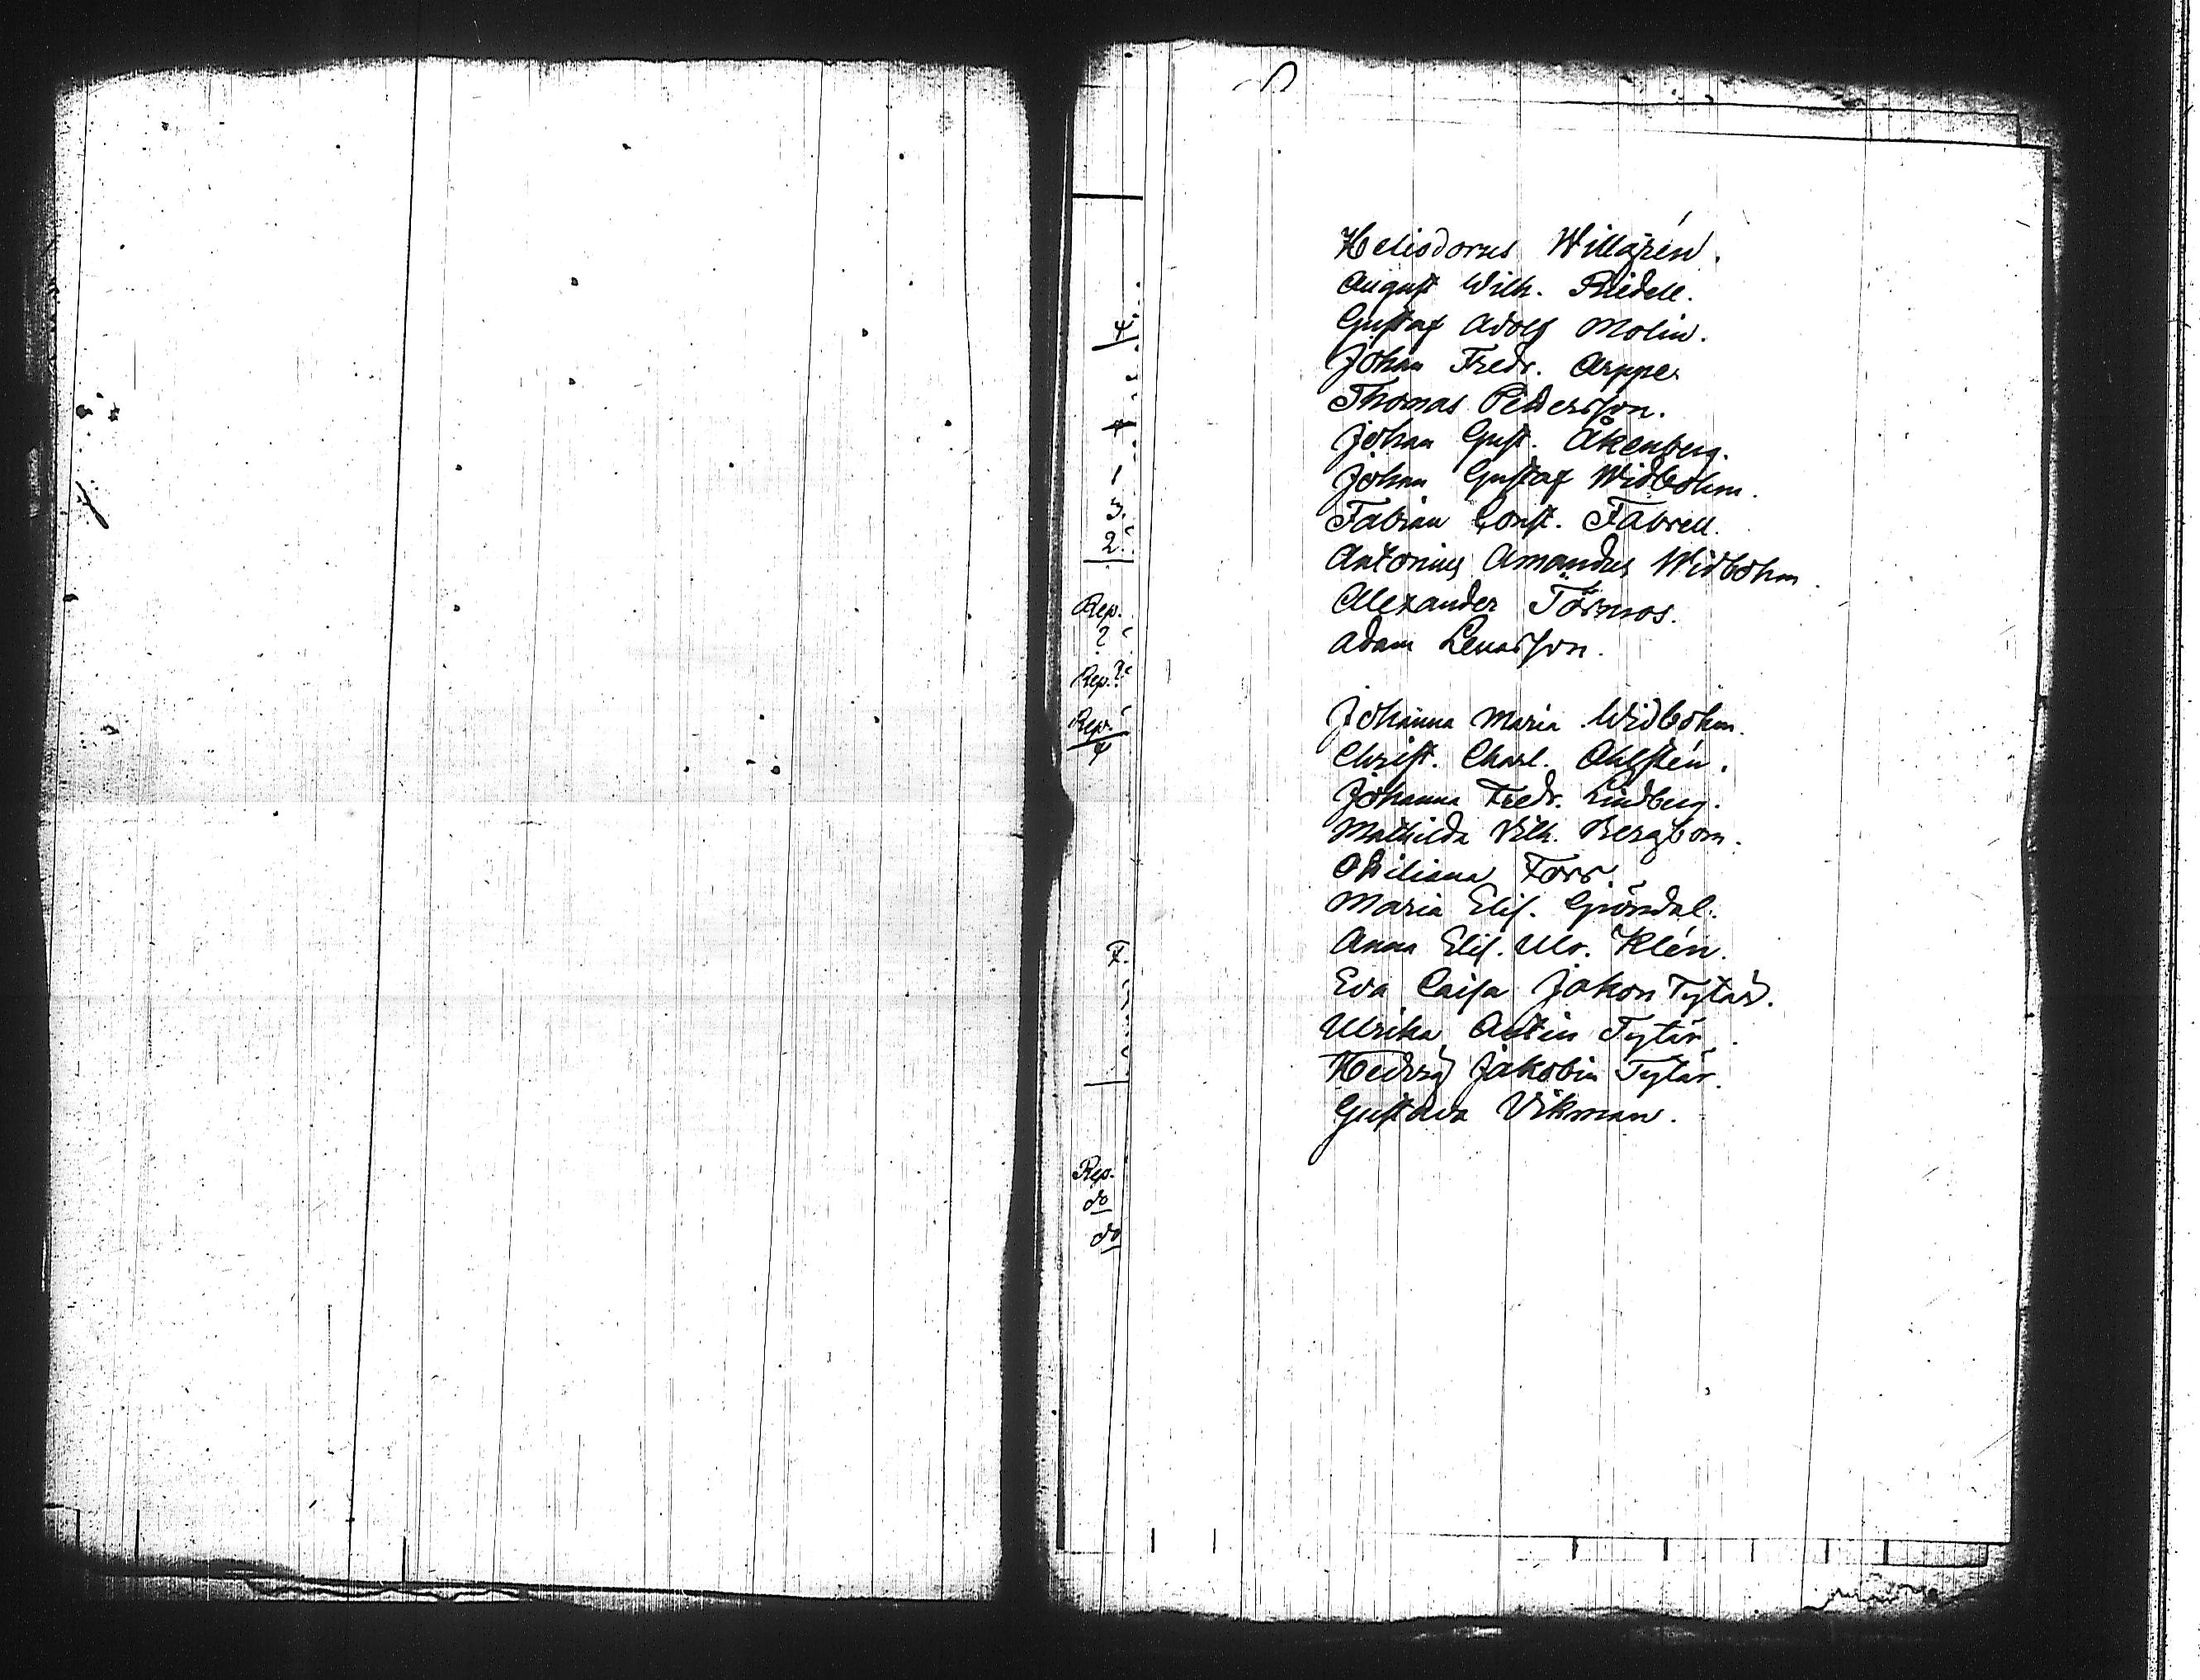 Heliodorus Willgrén.
August Wilh. Riedell.
Gustaf Adolf Molin.
Johan Fredr. Arppe.
Thomas Pettersson.
Johan Gust. Åkenberg.
Johan Gustaf Widbohm.
Fabian Const. Fabrell.
Antonius Amandus Widbohm.
Alexander Törmos.
Adam Lenarsson.
Johanna Maria Widbohm.
Christ. Charl. Ahlstén.
Johanna Fredr. Lindberg.
Mathilda Vilh. Bergbom.
Ottiliana Forss
Maria Elis. Gröndal.
Anna Elis. Ulr. Klén.
Eva Caisa Jakon Tytär.
Ulrika Antin Tytär.
Hedvig Jakobin Tytär.
Gustava Vikman.
3.
2.
Rep.
?
Rep. ?
Rep.
Rep.
do
do